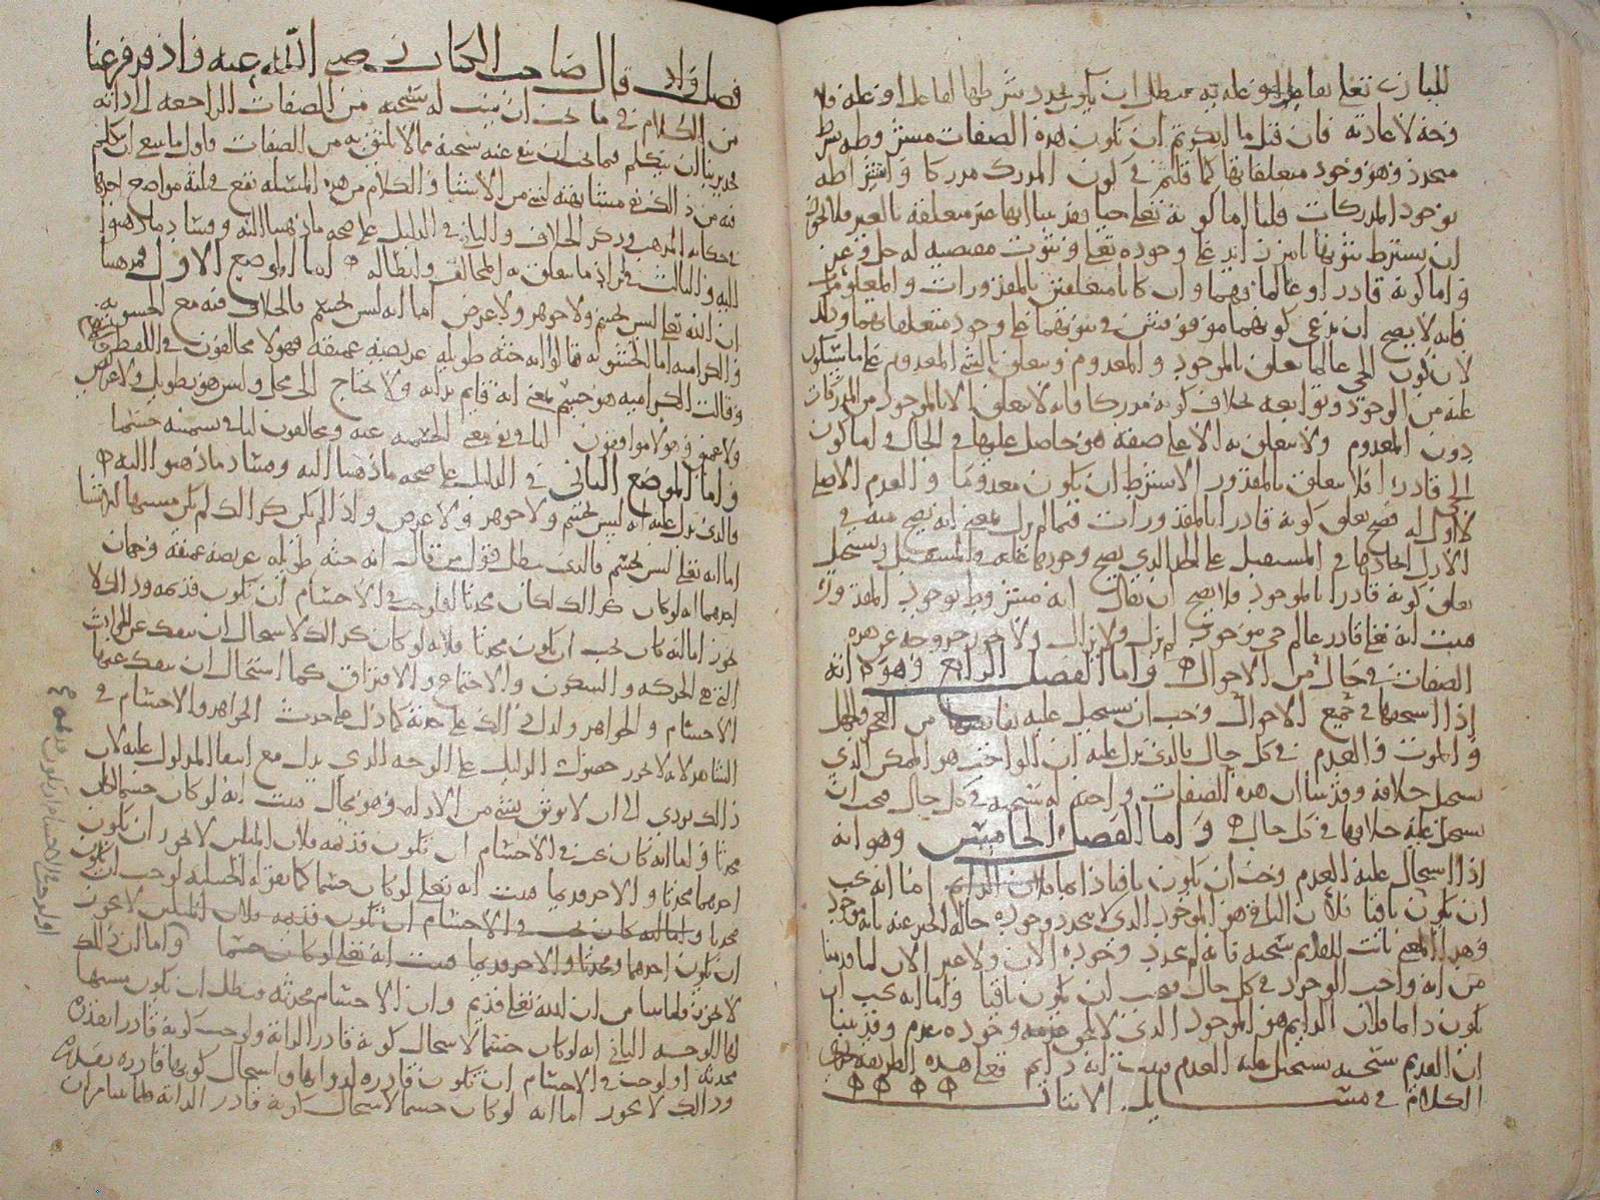 للباري تعالى
وجه لا عادته فان قيل ما انكرتم ان تكون هذه الصفات مشروطه بشرط
متجدد وهو وجود متعلقاتها كما قلتم في كون المدرك مدركا واشتراطه
بوجود المدركات قلنا اما كونه تعالى حيا فقد بينا انها غير متعلقة بالغير فلا يجوز
ان يشترط ثبوتها بامر زائد على وجوده تعالى وثبوت مقتضيه له جل وعز
واما كونه قادرا وعالما فهما وان كانا متعلقتين بالمقدورات والمعلومات
فانه لا يصح ان يدعى كونهما موقوفتين في ثبوتهما على وجود متعلقاتهما وذلك
لان كون الحي عالما يتعلق بالموجود والمعدوم ويتعلق بالشي المعدوم على ما سيكون
عليه من الوجود وتوابعه بخلاف كونه مدركا فانه لا يتعلق الا بالموجود من المدركات
دون المعدوم ولا يتعلق به الا على صفة هو حاصل عليها في الحال فاما كون
الحي قادرا فلا يتعلق بالمقدور الا بشرط ان يكون معدوما والعدم الاصلي
لا اول له فصح تعلق كونه قادرا بالمقدورات فيما لم يزل بمعنى انه يصح منه في
الازل ايجادها في المستقبل على الحال الذي يصح وجودها عليه والمستقبل ويستحيل
تعلق كونه قادرا بالموجود فلا يصح ان يقال انه مشروط بوجود المقدور
فثبت انه تعالى قادر عالم حي موجود لم يزل ولا يزال ولا يجوز خروجه عن هذه
الصفات في حال من الاحوال واما الفصل الرابع وهو انه
اذا استحقها في جميع الاحوال وجب ان يستحيل عليه نقائضها من العجز والجهل
والموت والعدم في كل حال فالذي يدل عليه ان الواجب هو الممكن الذي
يستحيل خلافه وقد بينا ان هذه الصفات واجبه له سبحنه في كل حال فيجب ان
يستحيل عليه خلافها في كل حال واما الفصل الخامس وهو انه
اذا استحال عليه العدم وجب ان يكون باقيا دايما فلان الدايم اما انه يجب
ان يكون باقيا فلان الباقي هو الموجود الذي لا يتجدد وجوده حالة الخبر عنه بانه موجود
وهذا المعنى ثابت للقديم سبحنه فانه لم يتجدد وجوده الان ولا غير الان لما قدمنا
من انه واجب الوجود في كل حال فيجب ان يكون باقيا واما انه يجب ان
يكون دايما فلان الدايم هو الموجود الذي لا يلحق وجوده عدم وقد بينا
ان القديم سبحنه يستحيل عليه العدم فثبت انه دايم فعلى هذه الطريقة يجري
الكلام في مسايل الاثبات
فصل قال صاحب الكتاب رضي الله عنه واذ قد فرغنا
من الكلام في ما يجب ان يثبت له سبحنه من الصفات الراجعه الى ذاته
فجدير بنا ان نتكلم فيما يجب ان ينفى عنه سبحنه مما لا يليق به من الصفات واول ما ينبغي ان نتكلم
فيه من ذلك نفي مشابهته لشي من الاشيا والكلام من هذه المسئله يقع في ثلثة مواضع احدها
في حكاية المذهب وذكر الخلاف والثاني في الدليل على صحه ما ذهبنا اليه وفساد ما ذهبوا
اليه والثالث في ايراد ما يتعلق به المخالف وابطاله اما الموضع الاول فمذهبنا
ان الله تعالى ليس بجسم ولا جوهر ولا عرض اما انه ليس بجسم فالخلاف فيه مع الحشويه
والكراميه اما الحشويه قالوا انه جثه طويله عريضه عميقه فهولا مخالفون في اللفظ
وقالت الكراميه هو جسم بمعنى انه قايم بذاته ولا يحتاج الى محل وليس هو بطويل ولا عريض
ولا عميق فهولا موافقون لنا في نفي معنى الجسميه عنه ومخالفون لنا في تسميته جسما
واما الموضع الثاني في الدليل على صحه ما ذهبنا اليه وفساد ما ذهبوا اليه
فالذي يدل عليه انه ليس بجسم ولا جوهر ولا عرض واذا لم يكن كذلك لم يكن مشبها لشي
اما انه تعالى ليس بجسم فالذي يبطل قول من قال انه جثه طويله عريضه عميقه وجهان
احدهما انه لو كان كذلك لكان محدثا او لوجب في الاجسام ان تكون قديمه وذلك لا
يجوز اما انه كان يجب ان يكون محدثا فلانه لو كان كذلك لاستحال ان ينفك عن الحوادث
التي هي الحركه والسكون والاجتماع والافتراق كما استحال ان ينفك عنها
الاجسام والجواهر ولدل ذلك على حدثه كما دل على حدث الجواهر والاجسام في
الشاهد لانه لا يجوز حصول الدليل على الوجه الذي يدل مع انتفا المدلول عليه لان
ذلك يودي الى ان لا يوثق بشي من الادله وهو محال فثبت انه لو كان جسما لكان
محدثا واما انه كان يجب في الاجسام ان تكون قديمه فلان المثلين لا يجوز ان يكون
احدهما محدثا والاخر قديما فثبت انه تعالى لو كان جسما كما يقوله الحشويه لوجب ان يكون
محدثا واما انه كان يجب في الاجسام ان تكون قديمه فلان المثلين لا يجوز
ان يكون احدهما محدثا والاخر قديما فثبت انه تعالى لو كان جسما واما ان ذلك
لا يجوز فلما بينا من ان الله تعالى قديم وان الاجسام محدثه فبطل ان يكون مشبها
لها الوجه الثاني انه لو كان جسما لاستحال كونه قادرا لذاته ولوجب كونه قادرا بقدرة
محدثه او لوجب في الاجسام ان تكون قادره لذواتها واستحال كونها قادره بقدرة
وذلك لا يجوز اما انه لو كان جسما لاستحال كونه قادرا لذاته فلما بينا من ان